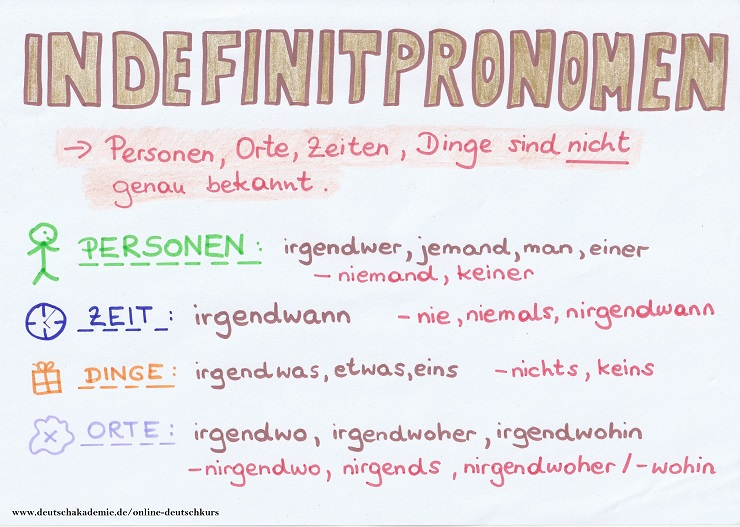 INDEFINITPRONOMEN
→ Personen, Orte, Zeiten, Dinge sind nicht
genau bekannt.
PERSONEN: irgendwer, jemand, man, einer
- niemand, keiner
ZEIT: irgendwann - nie, niemals, nirgendwann
DINGE: irgendwas, etwas, eins - nichts, keins
ORTE: irgendwo, irgendwoher, irgendwohin
- nirgendwo, nirgends, nirgendwoher/-wohin
www.deutschakademie.de/online-deutschkurs